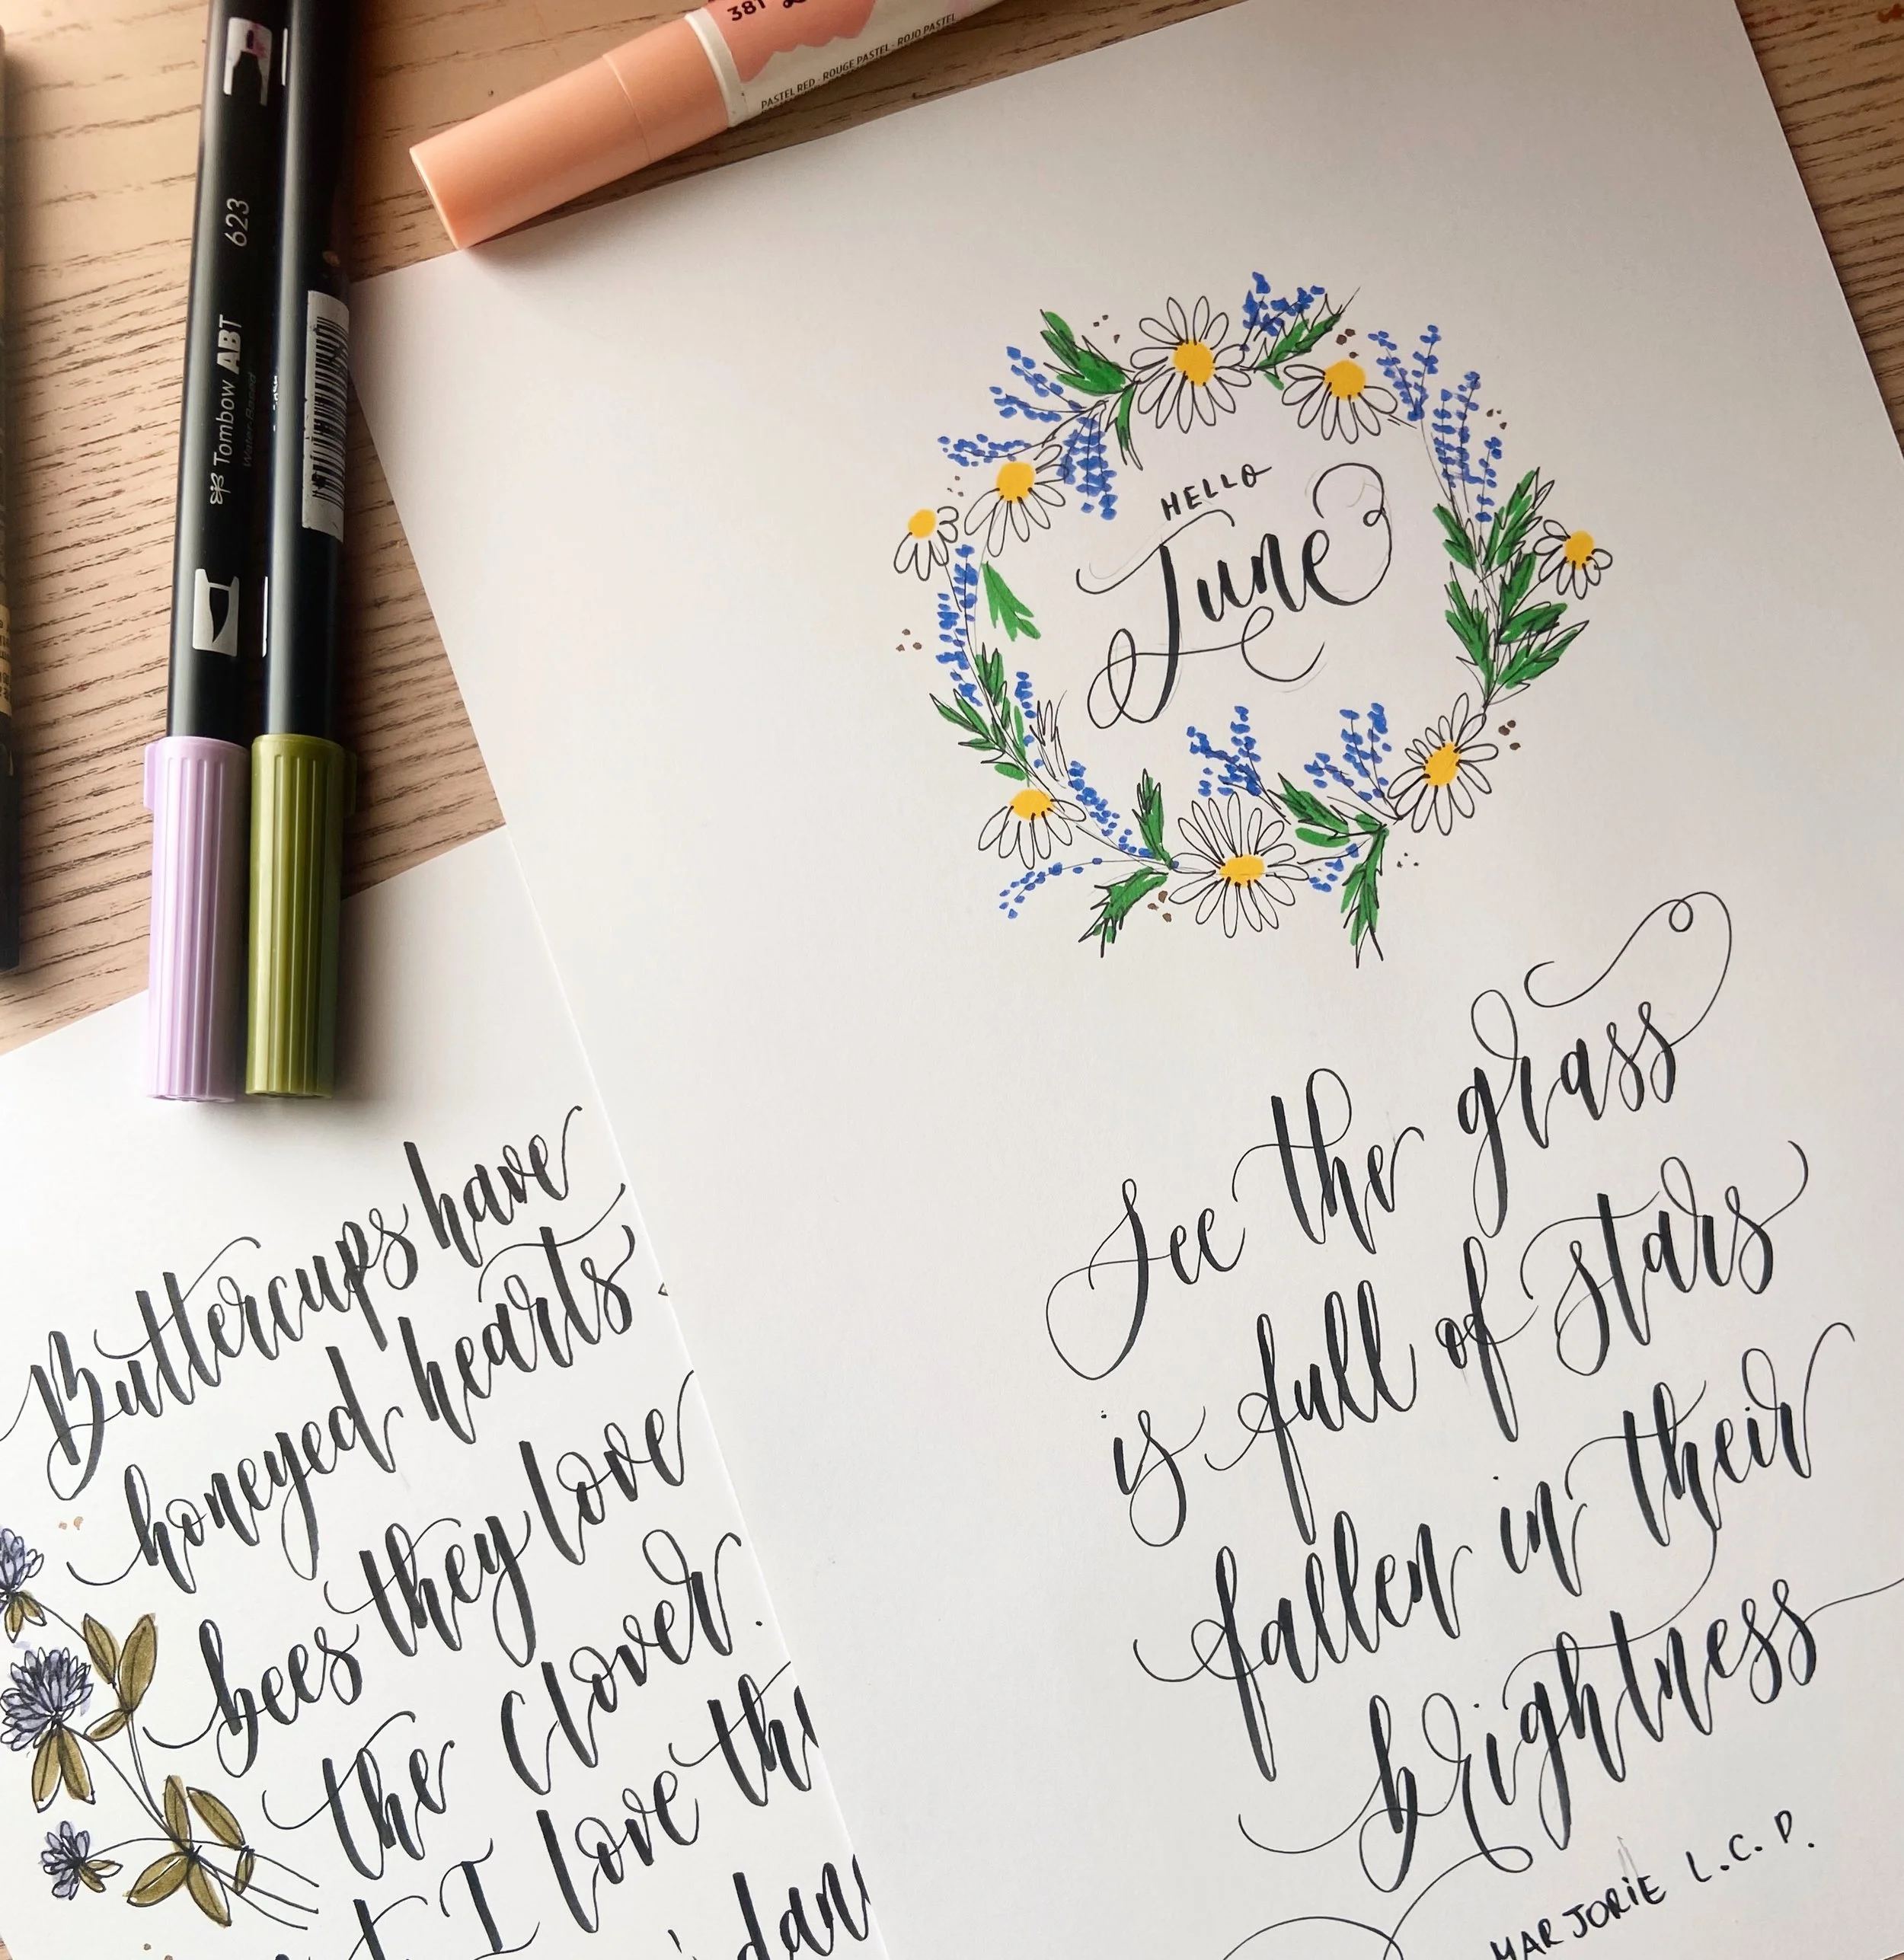 381
PASTEL RED · ROUGE PASTEL · ROJO PASTEL
623
Tombow ABT
Water-Based
HELLO
June
See the grass
is full of stars
fallen in their
brightness
MARJORIE L.C.P.
Buttercups have
honeyed hearts
bees they love
the clover.
I love the